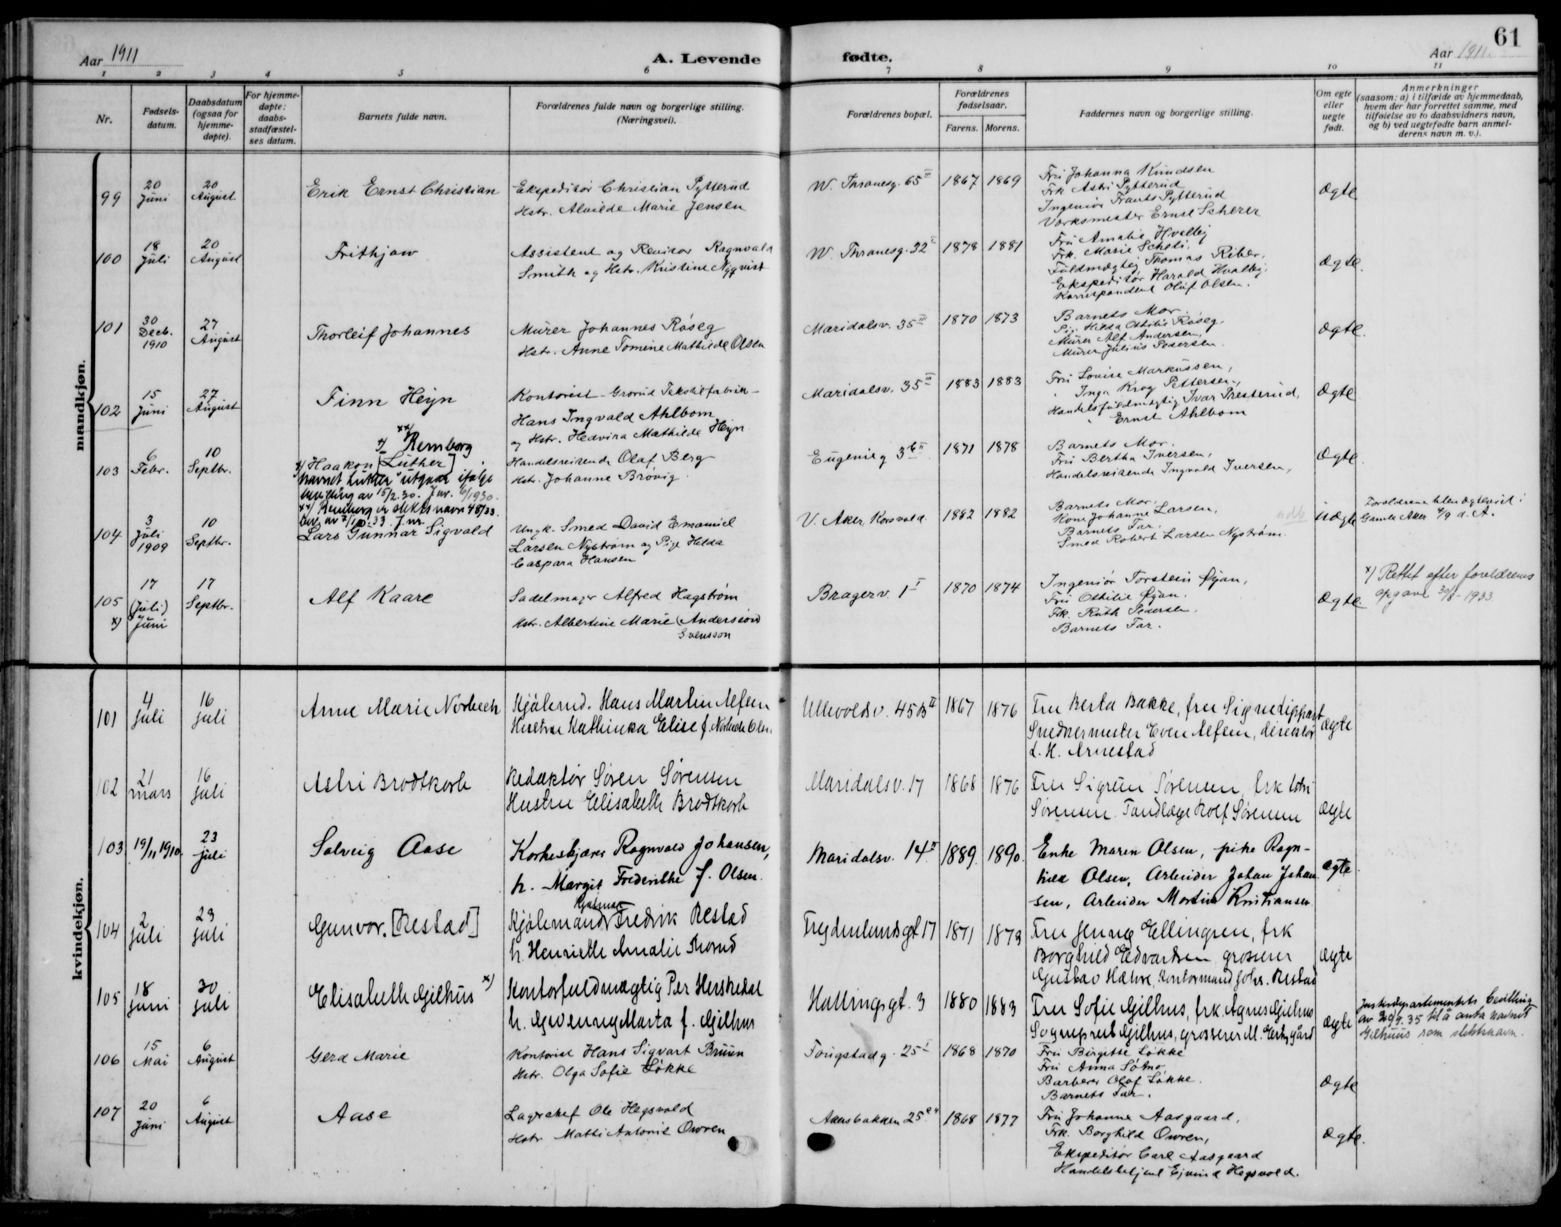 61
Aar 1911
A. Levende
fødte.
Aar 1911
1 2 3 4 5 6 7 8 9 10 11
Nr.
Fødsels-
datum.
Daabsdatum
(ogsaa for
hjemme-
døpte).
For hjemme-
døpte:
daabs-
stadfæstel-
ses datum.
Barnets fulde navn.
Forældrenes fulde navn og borgerlige stilling.
(Næringsvei).
Forældrenes bopæl.
Forældrenes
fødselsaar.
Farens.
Morens.
Faddernes navn og borgerlige stilling.
Om egte
eller
uegte
født.
Anmerkninger
(saasom: a) i tilfælde av hjemmedaab,
hvem der har forrettet samme, med
tilføielse av to daabsvidners navn,
og b) ved uegtefødte barn anmel-
derens navn m. v.).
mandkjøn.
99
20 Juni
20 August
Erik Ernst Christian
Ekspeditør Christian Pytterud
Hstr. Alvilde Marie Jensen
W. Thranesg. 65 II
1867 1869
Fru Johanna Knudsen
Frk Astri Pytterud
Ingeniør Frants Pytterud
Værksmester Ernst Scherer
Ægte
100
18 Juli
20 August
Frithjow
Assistent og Revisor Ragnvald
Smith og Hstr. Kristine Nyqvist
W. Thranesg. 32 I
1878 1881
Fru Amalie Hvalbj
Frk. Marie
Fuldmægtig Thomas Riber,
Ekspeditør Harald Hvalbj.
Korrespondent Oluf Olsen.
Ægte.
101
30 Decb. 1910
27 August
Thorleif Johannes
Murer Johannes Røseg
Hstr. Anne Tomine Mathilde Olsen
Maridalsv. 35 II
1870 1873
Barnets Mor.
Pige Hilda Ottilie Røseg.
Murer Alf Andersen,
Murer Julius Pedersen.
Ægte.
102
15 Juni
27 August
Finn Heyn
Kontorist Grorud Tekstilfabrik
Hans Ingvald Ahlbom
og Hstr. Hedvina Mathilde Heyn
Maridalsv. 35 II
1883 1883
Fru Louise Markussen,
" Inga Krog Pettersen,
Handelsfuldmægtig Ivar Presterud,
" Ernst Ahlbom
Ægte
103
6 Febr.
10 Septbr.
x) xx) Remborg
x) Haakon [Luther]
navnet Luther utgaar ifølge
av 15/2.30. J.nr. 1930.
xx) Remborg er slektsnavn 48/33
Lev. av 33 J.nr.
Handelsreisende Olaf Berg
Hstr. Johanne Brøvig.
Eugeniag 3b II
1871 1878
Barnets Mor.
Fru Bertha Iversen,
Handelsreisende Ingvald Iversen,
Ægte
104
3 Juli 1909
10 Septbr.
Lars Gunnar Sigvald
Ungk. Smed David Emanuel
Larsen Nystrøm og Pige Hilda
Caspara Hansen
V. Aker Korsvold.
1882 1882
Barnets Mor.
Kone Johanne Larsen,
Barnets Far.
Smed Robert Larsen Nystrøm
Uægte
Forældrene blev ægteviet i
Gamle Aker 4/9 d. A.
105
x)
17 (Juli) Juni
17 Septbr.
Alf Kaare
Sadelmager Alfred Hagstrøm
Hstr. Albertine Marie (Andersson)
Svensson
Bragerv. 1 I
1870 1874
Ingeniør Torstein Øyan,
Fru Othilie Øyan.
Frk. Ruth Pedersen.
Barnets Far.
Ægte
x) Rettet efter foreldrenes
opgave 30/8 1933.
kvindekjøn.
101
4 juli
16 juli
Anne Marie Norbech
Kjølemd. Hans Martin Alfsen
Hustru Kathinka Elise f. Norbech Olsen
Ullevoldsv. 45B II
1867 1876
Fru Berta Bakke, fru Signe
Snedkermester Even Alfsen, direktør
L. H. Arnestad
ægte
102
21 mars
16 juli
Astri Brodtkorb
Redaktør Søren Sørensen
Hustru Elisabeth Brodtkorb
Maridalsv. 17
1868 1876
Fru Sigrun Sørensen, frk
Sørensen. Tandlæge Rolf Sørensen
ægte
103
19/11 1910.
23 juli
Solveig Aase
Korkeskjærer Ragnvald Johansen,
h. Margit Fredrikke f. Olsen.
Maridalsv. 14 II
1889. 1890.
Enke Maren Olsen, pike Ragn-
hild Olsen, Arbeider Johan Johan-
sen, Arbeider Martin Kristiansen
ægte
104
2 juli
23 juli
Gunvor. [Restad]
Kjølemand Fredrik Restad
h. Henriette Amalie Thorud
Frydenlundsgt 17
1871 1873
Fru Jenny Ellingsen, frk
Borghild Edvardsen grosserer
Gustav Kontormand Johs. Restad
ægte
105
18 juni
30 juli
Elisabeth Gjilhus x)
Kontorfuldmægtig Per Herskedal
h. Marta f. Gjilhus
Hallingsgt. 3
1880 1883
Fru Sofie Gilhus, frk Agnes Gjilhus
Sogneprest Gjilhus, grosserer M.
ægte
Justisdepartementets bevilling
av 20/9.35 til å anta navnet
Gilhuus som slektsnavn.
106
15 Mai
6 August
Gerd Marie
Kontorist Hans Sigvart Bruun
Hstr. Olga Sofie Løkke
Tougstadg. 25 I
1868 1870
Fru Birgitte Løkke
Fru Anna
Barberer Olaf Løkke.
Barnets Far.
Ægte
107
20 Juni
6 August
Aase
Lagerchef Ole Hegsvold
Hstr. Mathi Antonie Owren
Akersbakken 25
1868 1877
Fru Johanne Aasgaard,
Frk. Borghild Owren,
Ekspeditør Carl Aasgaard
Handelsbetjent Ejvind Hegsvold.
Ægte.